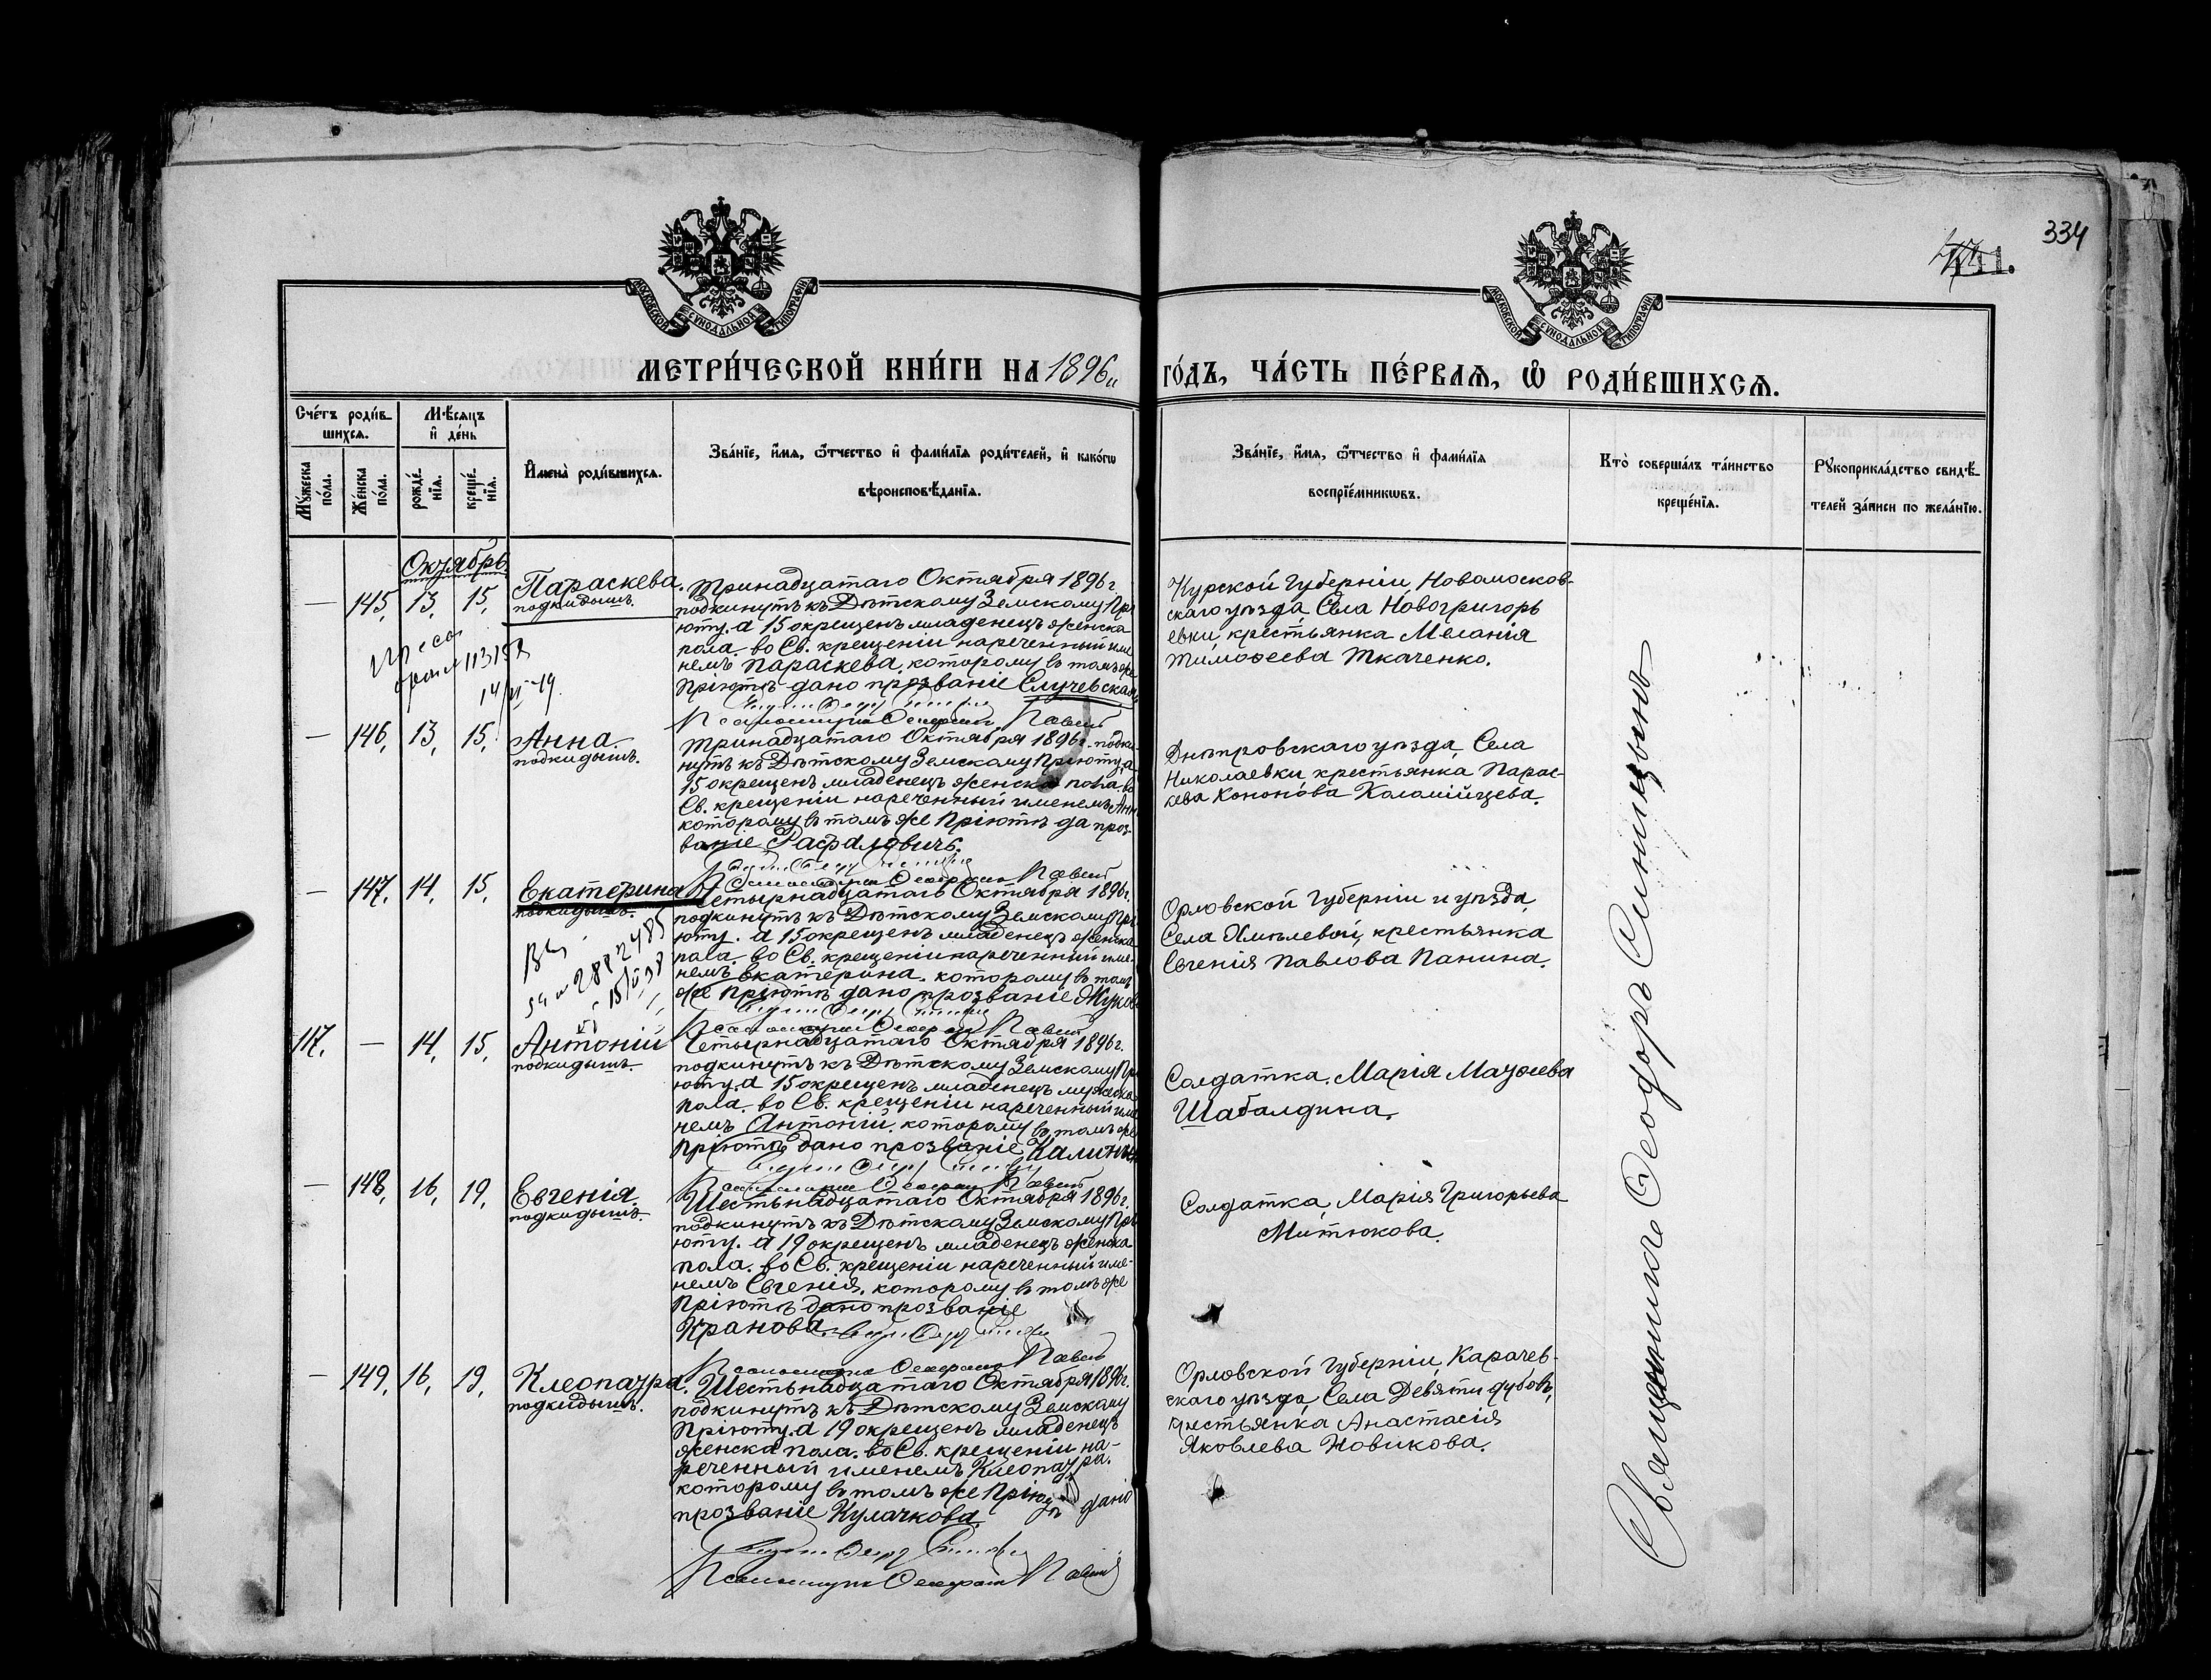 334
МОСКОВСКОЙ СѴНОДАЛЬНОЙ ТИПОГРАФІИ
МОСКОВСКОЙ СѴНОДАЛЬНОЙ ТИПОГРАФІИ
МЕТРИ́ЧЕСКОЙ КНИ́ГИ НА 1896 ГО́ДЪ, ЧА́СТЬ ПЕ́РВАѦ, Ѡ҆ РОДИ́ВШИХСѦ.
Сче́тъ роди́в-
шихсѧ.
Мꙋжеска по́ла.
Же́нска по́ла.
Мѣ́сяцъ и҆ де́нь
рожде́нїѧ.
креще́нїѧ.
И҆мена̀ роди́вшихсѧ.
Зва́нїе, и҆́мѧ, ѻ҆́тчество и҆ фами́лїѧ роди́телей, и҆ како́гѡ
вѣроисповѣ́данїѧ.
Зва́нїе, и҆́мѧ, ѻ҆́тчество и҆ фами́лїѧ
воспрїе́мникѡвъ.
Кто̀ соверша́лъ та́инство
креще́нїѧ.
Рꙋкоприкла́дство свидѣ́-
телей за́писи по жела́нїю.
Октябрь.
— 145. 13. 15. Параскева.
подкидышъ.
Тринадцатаго Октября 1896 г.
подкинутъ къ Дѣтскому Земскому Прі
юту. а 15 окрещенъ младенецъ женска
пола. во Св. крещеніи нареченный име
немъ Параскева. которому въ томъ же
Пріютѣ дано прозваніе Случевская
Курской Губерніи, Новомосков-
скаго уѣзда, Села Новогригорь
евки, крестьянка Меланія
Тимоѳеева Ткаченко.
14/VI-49.
— 146. 13. 15. Анна.
подкидышъ.
Тринадцатаго Октября 1896 г. подки-
нутъ къ Дѣтскому Земскому Пріюту, а
15 окрещенъ младенецъ женска пола. во
Св. крещеніи нареченный именемъ Анна
которому въ томъ же Пріютѣ да проз-
ваніе Рафаловичъ.
Днѣпровскаго уѣзда, Села
Николаевки, крестьянка Парас-
кева Кононова Коломійцева.
— 147. 14. 15. Екатерина
подкидышъ.
Четырнадцатаго Октября 1896 г.
подкинутъ къ Дѣтскому Земскому Прі
юту. а 15 окрещенъ младенецъ женска
пола. во Св. крещеніи нареченный име-
немъ Екатерина. которому въ томъ
же Пріютѣ дано прозваніе Жукова
Орловской Губерніи и уѣзда,
Села Хмѣлевой, крестьянка
Евгенія Павлова Панина.
117. — 14. 15. Антоній
подкидышъ.
Четырнадцатаго Октября 1896 г.
подкинутъ къ Дѣтскому Земскому Прі
юту. а 15 окрещенъ младенецъ мужеска
пола. во Св. крещеніи нареченный име
немъ Антоній. которому въ томъ же
Пріютѣ дано прозваніе
Солдатка, Марія Маѳѳеева
Шабалдина.
— 148. 16. 19. Евгенія.
подкидышъ.
Шестьнадцатаго Октября 1896 г.
подкинутъ къ Дѣтскому Земскому Прі
юту. а 19 окрещенъ младенецъ женска
пола. во Св. крещеніи нареченный име-
немъ Евгенія. которому въ томъ же
Пріютѣ дано прозваніе
Кранова.
Солдатка, Марія Григорьева
Митюкова.
— 149. 16. 19. Клеопатра.
подкидышъ.
Шестьнадцатаго Октября 1896 г.
подкинутъ къ Дѣтскому Земскому
Пріюту. а 19 окрещенъ младенецъ
женска пола. во Св. крещеніи на-
реченный именемъ Клеопатра.
которому въ томъ же Пріютѣ дано
прозваніе Кулачкова.
Орловской Губерніи, Карачев-
скаго уѣзда, Села Девяти дубовъ,
крестьянка Анастасія
Яковлева Новикова.
Священникъ Ѳеодоръ Синицынъ